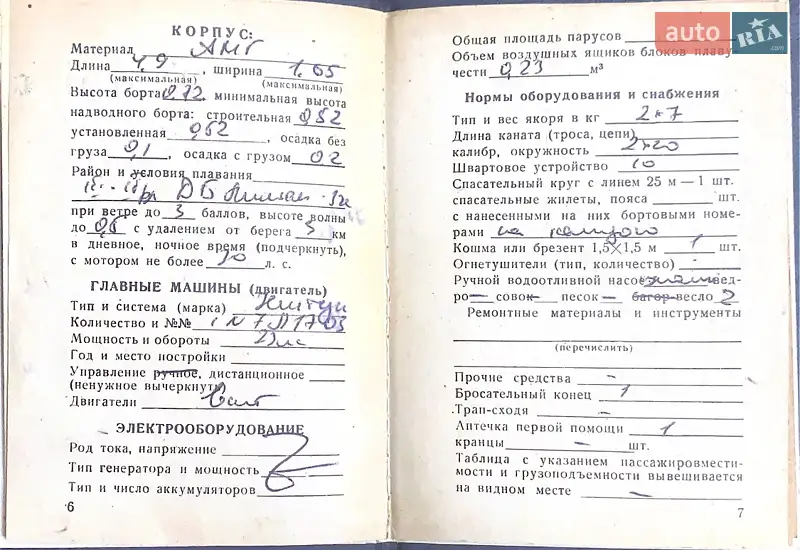 КОРПУС:
Материал АМГ
Длина 4,9, ширина 1.65
(максимальная) (максимальная)
Высота борта 0,72, минимальная высота
надводного борта: строительная 0,52
установленная 0,52, осадка без
груза 0,1, осадка с грузом 0,2
Район и условия плавания
ДБ Лиман
при ветре до 3 баллов, высоте волны
до 0,6 с удалением от берега 3 км
в дневное, ночное время (подчеркнуть),
с мотором не более 30 л. с.
ГЛАВНЫЕ МАШИНЫ (двигатель)
Тип и система (марка)
Количество и №№ 1 N
Мощность и обороты
Год и место постройки
Управление ручное, дистанционное
(ненужное вычеркнуть)
Двигатели
ЭЛЕКТРООБОРУДОВАНИЕ
Род тока, напряжение
Тип генератора и мощность
Тип и число аккумуляторов
6
Общая площадь парусов
Объем воздушных ящиков блоков плаву-
чести 0,23 м³
Нормы оборудования и снабжения
Тип и вес якоря в кг 2×7
Длина каната (троса, цепи),
калибр, окружность 2×20
Швартовое устройство 10
Спасательный круг с линем 25 м — 1 шт.
спасательные жилеты, пояса шт.
с нанесенными на них бортовыми номе-
рами на каждого
Кошма или брезент 1,5×1,5 м 1 шт.
Огнетушители (тип, количество) -
Ручной водоотливной насос вед-
ро— совок— песок — багор весло 2
Ремонтные материалы и инструменты
(перечислить)
Прочие средства —
Бросательный конец 1
Трап-сходя —
Аптечка первой помощи 1
кранцы — шт.
Таблица с указанием пассажировмести-
мости и грузоподъемности вывешивается
на видном месте —
7
auto RIA
.com